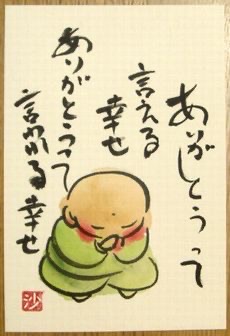 ありがとうって
言える
幸せ
ありがとうって
言われる幸せ
沙